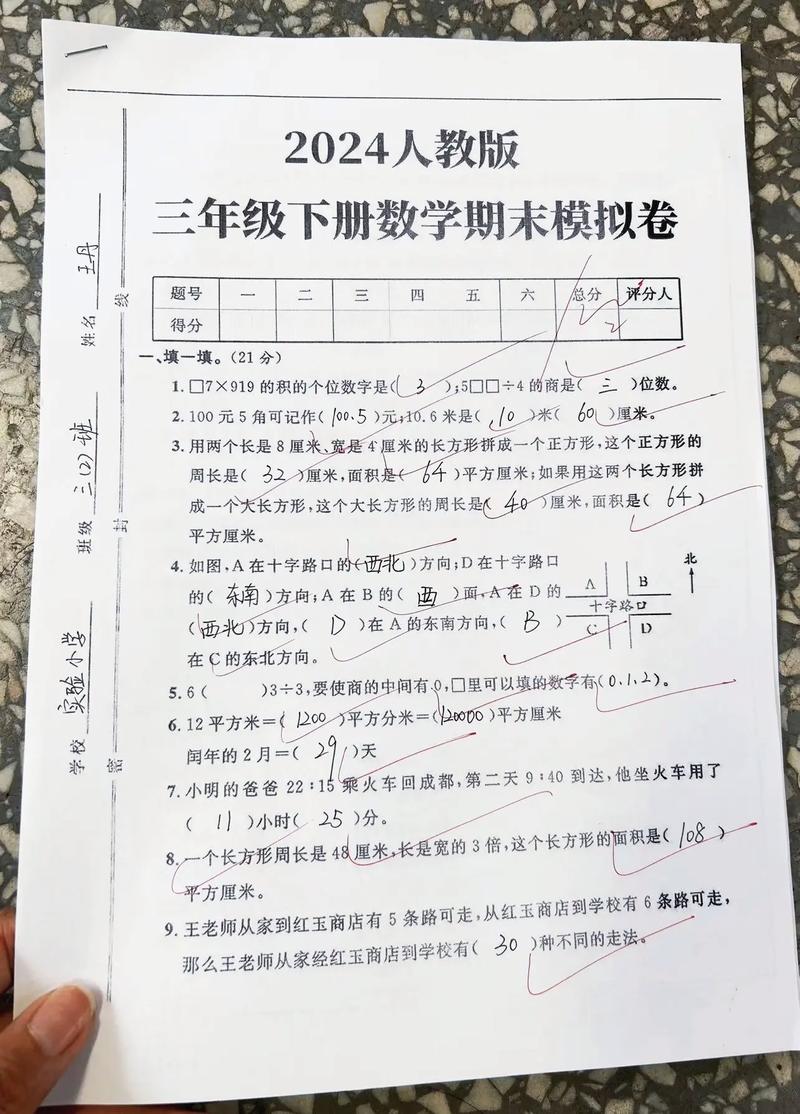 2024人教版
三年级下册数学期末模拟卷
题号 一 二 三 四 五 六 总分 评分人
得分
一、填一填。(21分)
1. □7×919的积的个位数字是( 3 );5□□÷4的商是( 三 )位数。
2. 100元5角可记作(100.5)元;10.6米是( 10 )米( 60 )厘米。
3. 用两个长是8厘米、宽是4厘米的长方形拼成一个正方形,这个正方形的
周长是( 32 )厘米,面积是( 64 )平方厘米;如果用这两个长方形拼
成一个大长方形,这个大长方形的周长是( 40 )厘米,面积是( 64 )
平方厘米。
4. 如图,A在十字路口的(西北)方向;D在十字路口
的(东南)方向;A在B的( 西 )面,A在D的
(西北)方向,( D )在A的东南方向,( B )
在C的东北方向。
北
A B
十字路口
C D
5. 6( )3÷3,要使商的中间有0,□里可以填的数字有(0.1.2)。
6. 12平方米=( 1200 )平方分米=(120000)平方厘米
闰年的2月=( 29 )天
7. 小明的爸爸22:15乘火车回成都,第二天9:40到达,他坐火车用了
( 11 )小时( 25 )分。
8. 一个长方形周长是48厘米,长是宽的3倍,这个长方形的面积是( 108 )
平方厘米。
9. 王老师从家到红玉商店有5条路可走,从红玉商店到学校有6条路可走,
那么王老师从家经红玉商店到学校有( 30 )种不同的走法。
学校 实验小学 班级 三(2)班 姓名 王丹
密 封 线